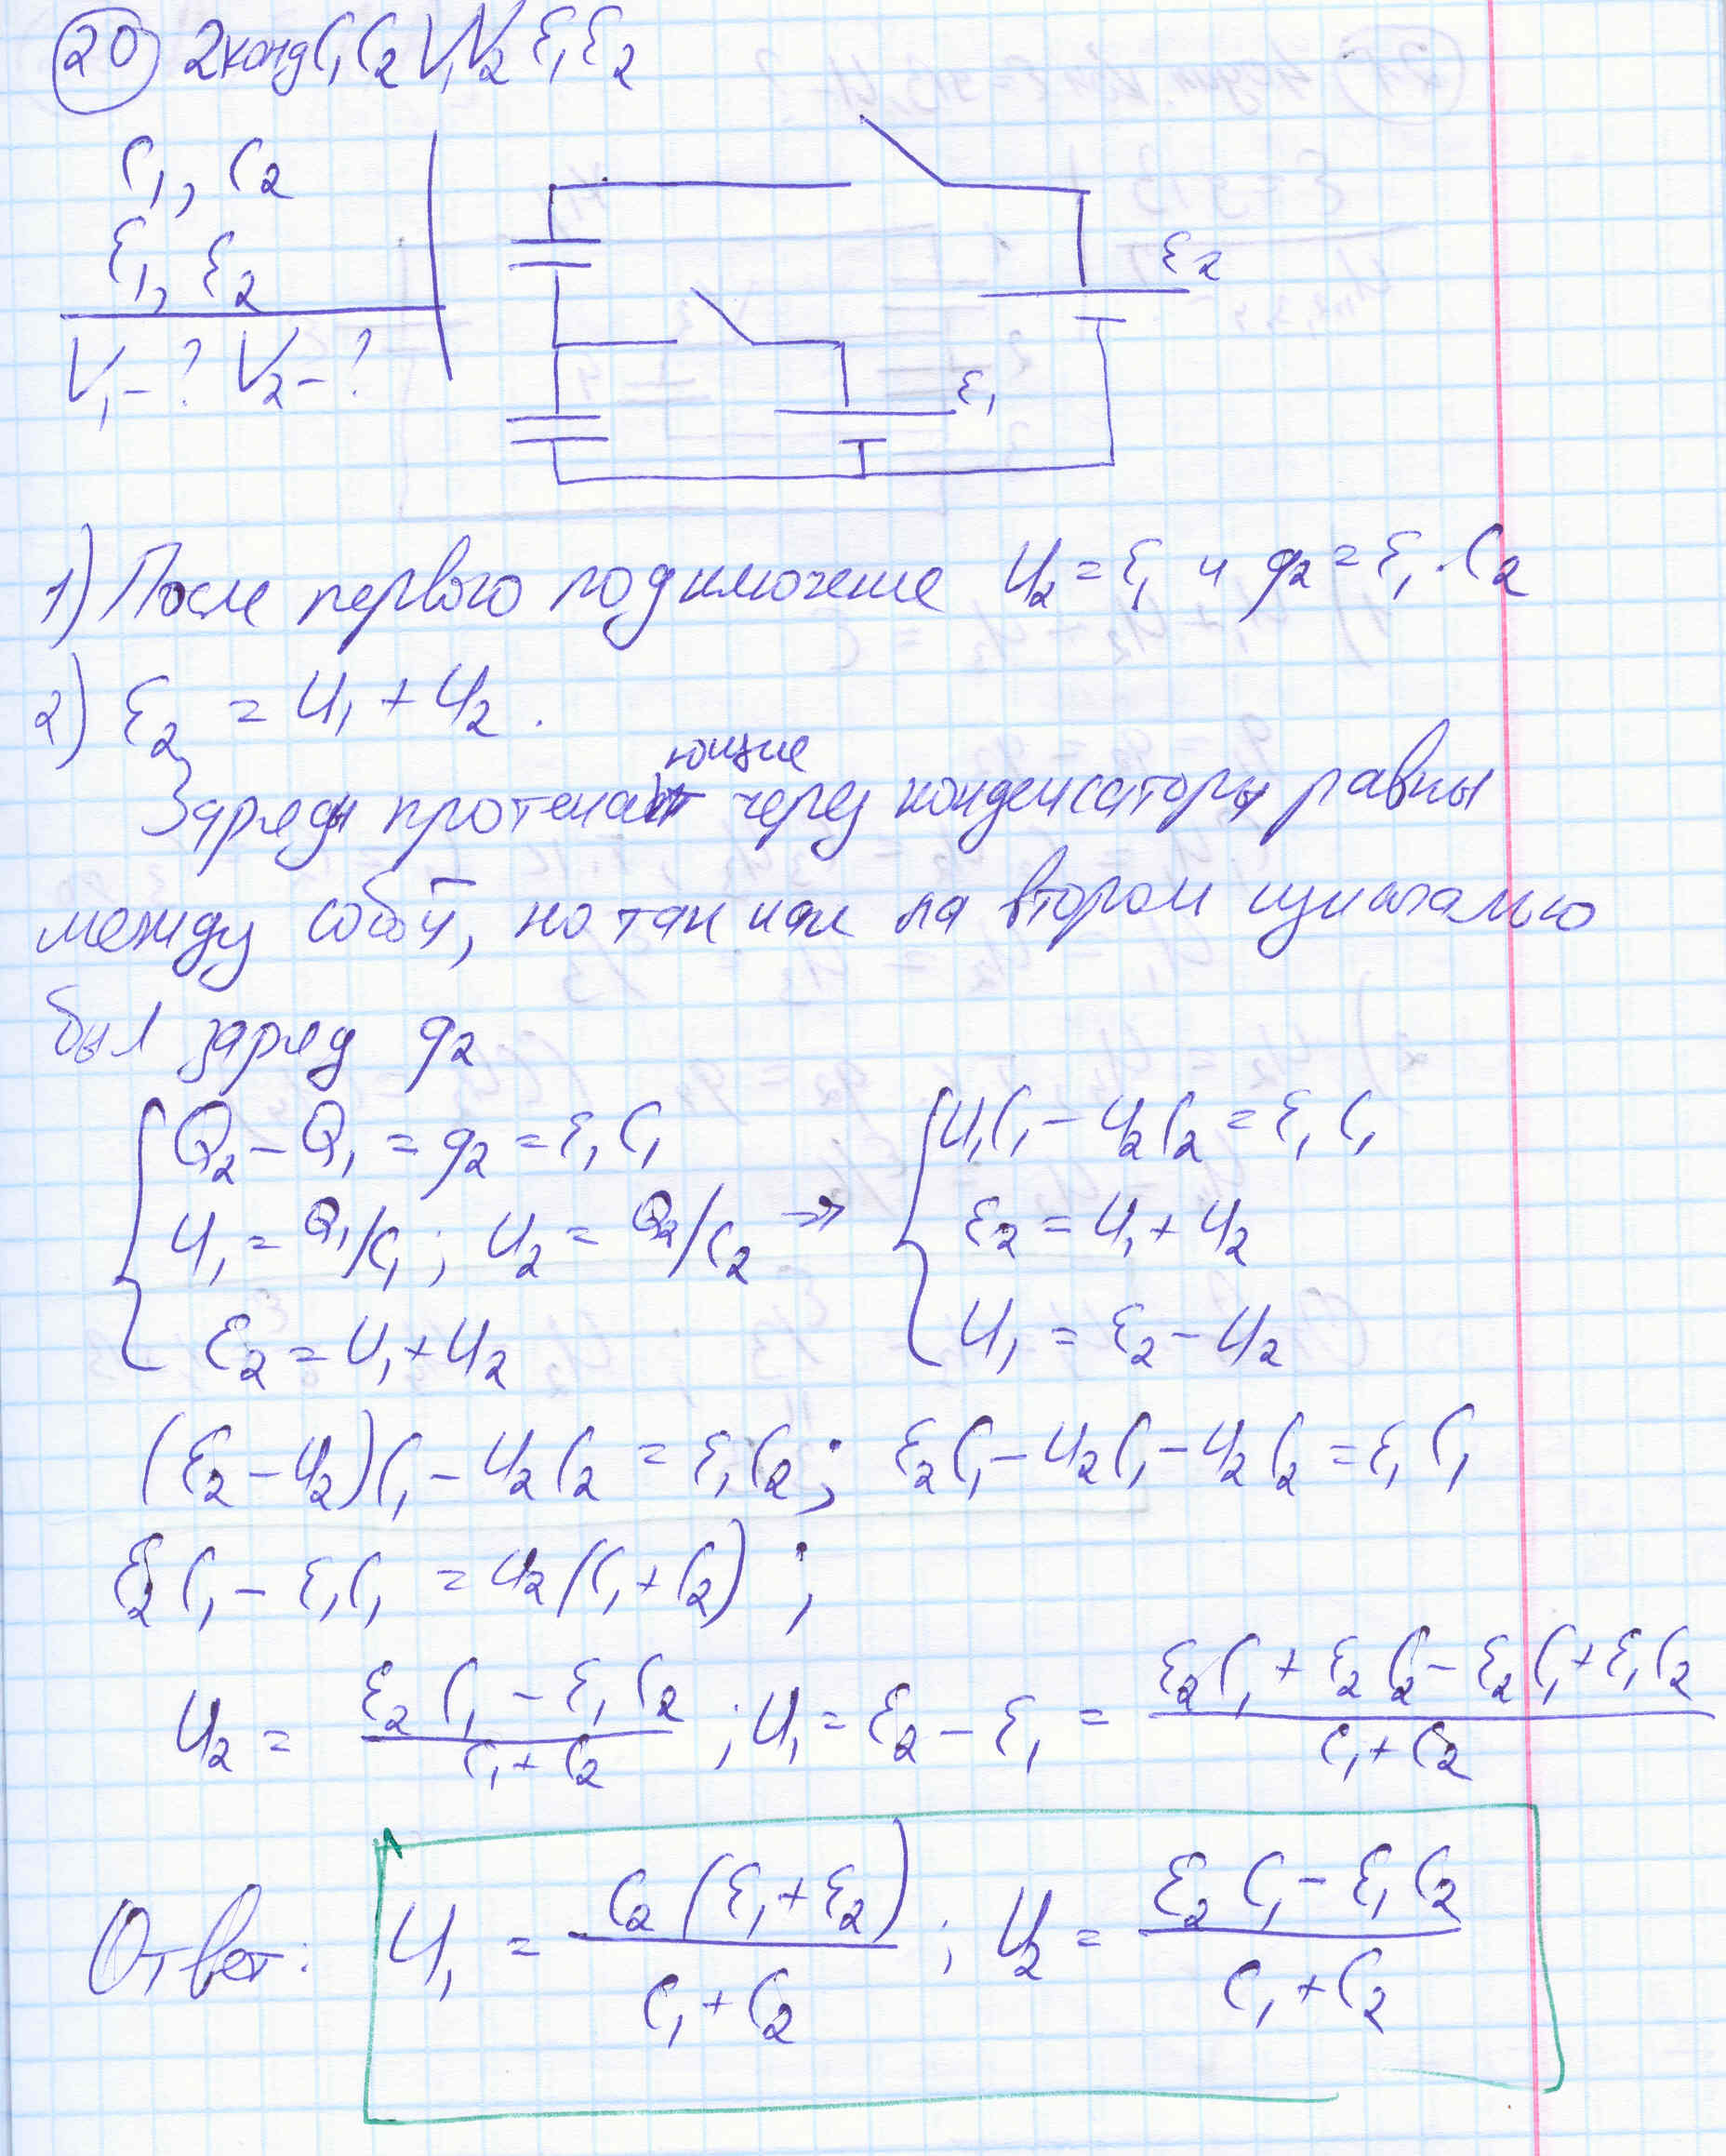 20 2 конд C₁ C₂ V₁ V₂ ℰ₁ ℰ₂
C₁, C₂
ℰ₁, ℰ₂
V₁ - ? V₂ - ?
ℰ₂
ℰ₁
1) После первого подключение U₂ = ℰ₁ и q₂ = ℰ₁ · C₂
2) ℰ₂ = U₁ + U₂.
Заряды протекающие через конденсаторы равны
между собой, но так как на втором изначально
был заряд q₂
Q₂ - Q₁ = q₂ = ℰ₁ C₁
U₁ = Q₁/C₁; U₂ = Q₂/C₂ ⇒
ℰ₂ = U₁ + U₂
U₁C₁ - U₂C₂ = ℰ₁ C₁
ℰ₂ = U₁ + U₂
U₁ = ℰ₂ - U₂
(ℰ₂ - U₂)C₁ - U₂C₂ = ℰ₁C₂; ℰ₂C₁ - U₂C₁ - U₂C₂ = ℰ₁ C₁
ℰ₂C₁ - ℰ₁C₁ = U₂(C₁ + C₂);
U₂ = (ℰ₂ C₁ - ℰ₁ C₂)/(C₁ + C₂); U₁ = ℰ₂ - ℰ₁ = (ℰ₂C₁ + ℰ₂C₂ - ℰ₂C₁ + ℰ₁C₂)/(C₁ + C₂)
Ответ: U₁ = C₂(ℰ₁ + ℰ₂)/(C₁ + C₂); U₂ = (ℰ₂ C₁ - ℰ₁C₂)/(C₁ + C₂)